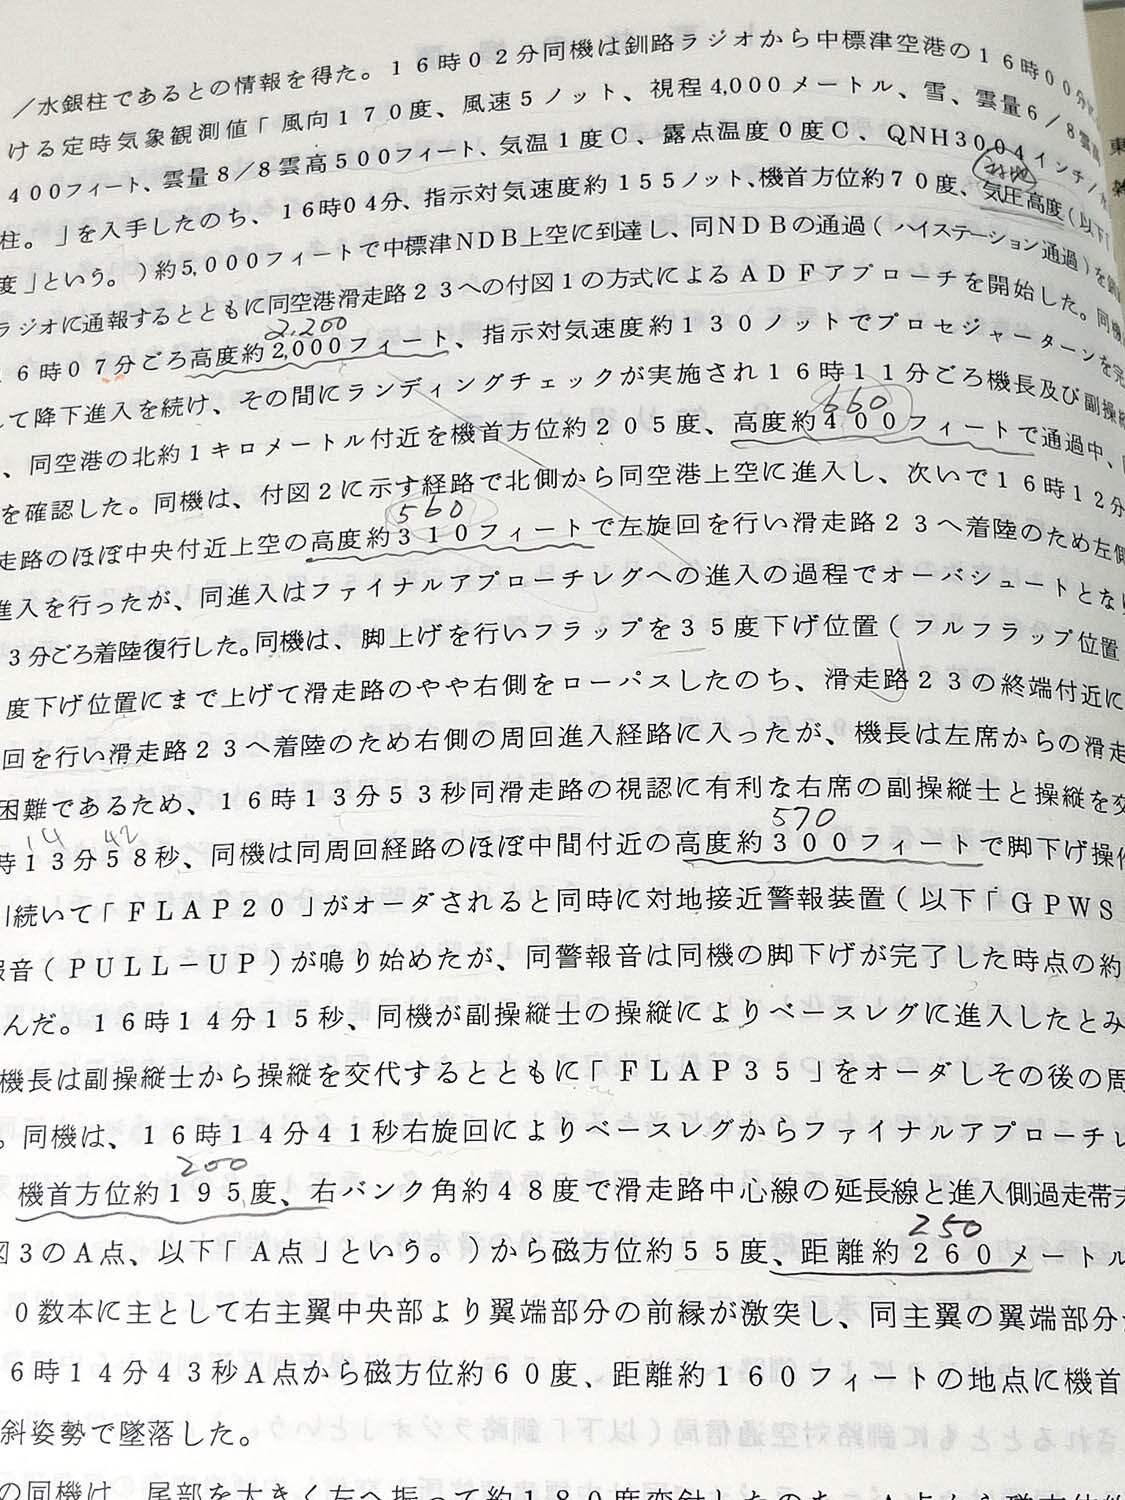 ／水銀柱であるとの情報を得た。１６時０２分同機は釧路ラジオから中標津空港の１６時００分
ける定時気象観測値「風向１７０度、風速５ノット、視程4,000メートル、雪、雲量６／８雲高
４００フィート、雲量８／８雲高５００フィート、気温１度Ｃ、露点温度０度Ｃ、ＱＮＨ３００４インチ／水
対地
柱。」を入手したのち、１６時０４分、指示対気速度約１５５ノット、機首方位約７０度、気圧高度（以下「
度」という。）約5,000フィートで中標津ＮＤＢ上空に到達し、同ＮＤＢの通過（ハイステーション通過）を釧
ラジオに通報するとともに同空港滑走路２３への付図１の方式によるＡＤＦアプローチを開始した。同機
2,200
６時０７分ごろ高度約2,000フィート、指示対気速度約１３０ノットでプロセジャーターンを完
して降下進入を続け、その間にランディングチェックが実施され１６時１１分ごろ機長及び副操縦
660
、同空港の北約１キロメートル付近を機首方位約２０５度、高度約４００フィートで通過中、
を確認した。同機は、付図２に示す経路で北側から同空港上空に進入し、次いで１６時１２分
560
走路のほぼ中央付近上空の高度約３１０フィートで左旋回を行い滑走路２３へ着陸のため左側
進入を行ったが、同進入はファイナルアプローチレグへの進入の過程でオーバシュートとな
３分ごろ着陸復行した。同機は、脚上げを行いフラップを３５度下げ位置（フルフラップ位置
度下げ位置にまで上げて滑走路のやや右側をローパスしたのち、滑走路２３の終端付近に
回を行い滑走路２３へ着陸のため右側の周回進入経路に入ったが、機長は左席からの滑走
困難であるため、１６時１３分５３秒同滑走路の視認に有利な右席の副操縦士と操縦を交
14 42 570
時１３分５８秒、同機は同周回経路のほぼ中間付近の高度約３００フィートで脚下げ操作
続いて「ＦＬＡＰ２０」がオーダされると同時に対地接近警報装置（以下「ＧＰＷＳ
報音（ＰＵＬＬ－ＵＰ）が鳴り始めたが、同警報音は同機の脚下げが完了した時点の約
んだ。１６時１４分１５秒、同機が副操縦士の操縦によりベースレグに進入したとみ
機長は副操縦士から操縦を交代するとともに「ＦＬＡＰ３５」をオーダしその後の周
。同機は、１６時１４分４１秒右旋回によりベースレグからファイナルアプローチレ
200
機首方位約１９５度、右バンク角約４８度で滑走路中心線の延長線と進入側過走帯末
250
図３のＡ点、以下「Ａ点」という。）から磁方位約５５度、距離約２６０メートル
０数本に主として右主翼中央部より翼端部分の前縁が激突し、同主翼の翼端部分
６時１４分４３秒Ａ点から磁方位約６０度、距離約１６０フィートの地点に機首
斜姿勢で墜落した。
の同機は、尾部を大きく左へ振って約１８０度変針したのち、Ａ点から磁方位約